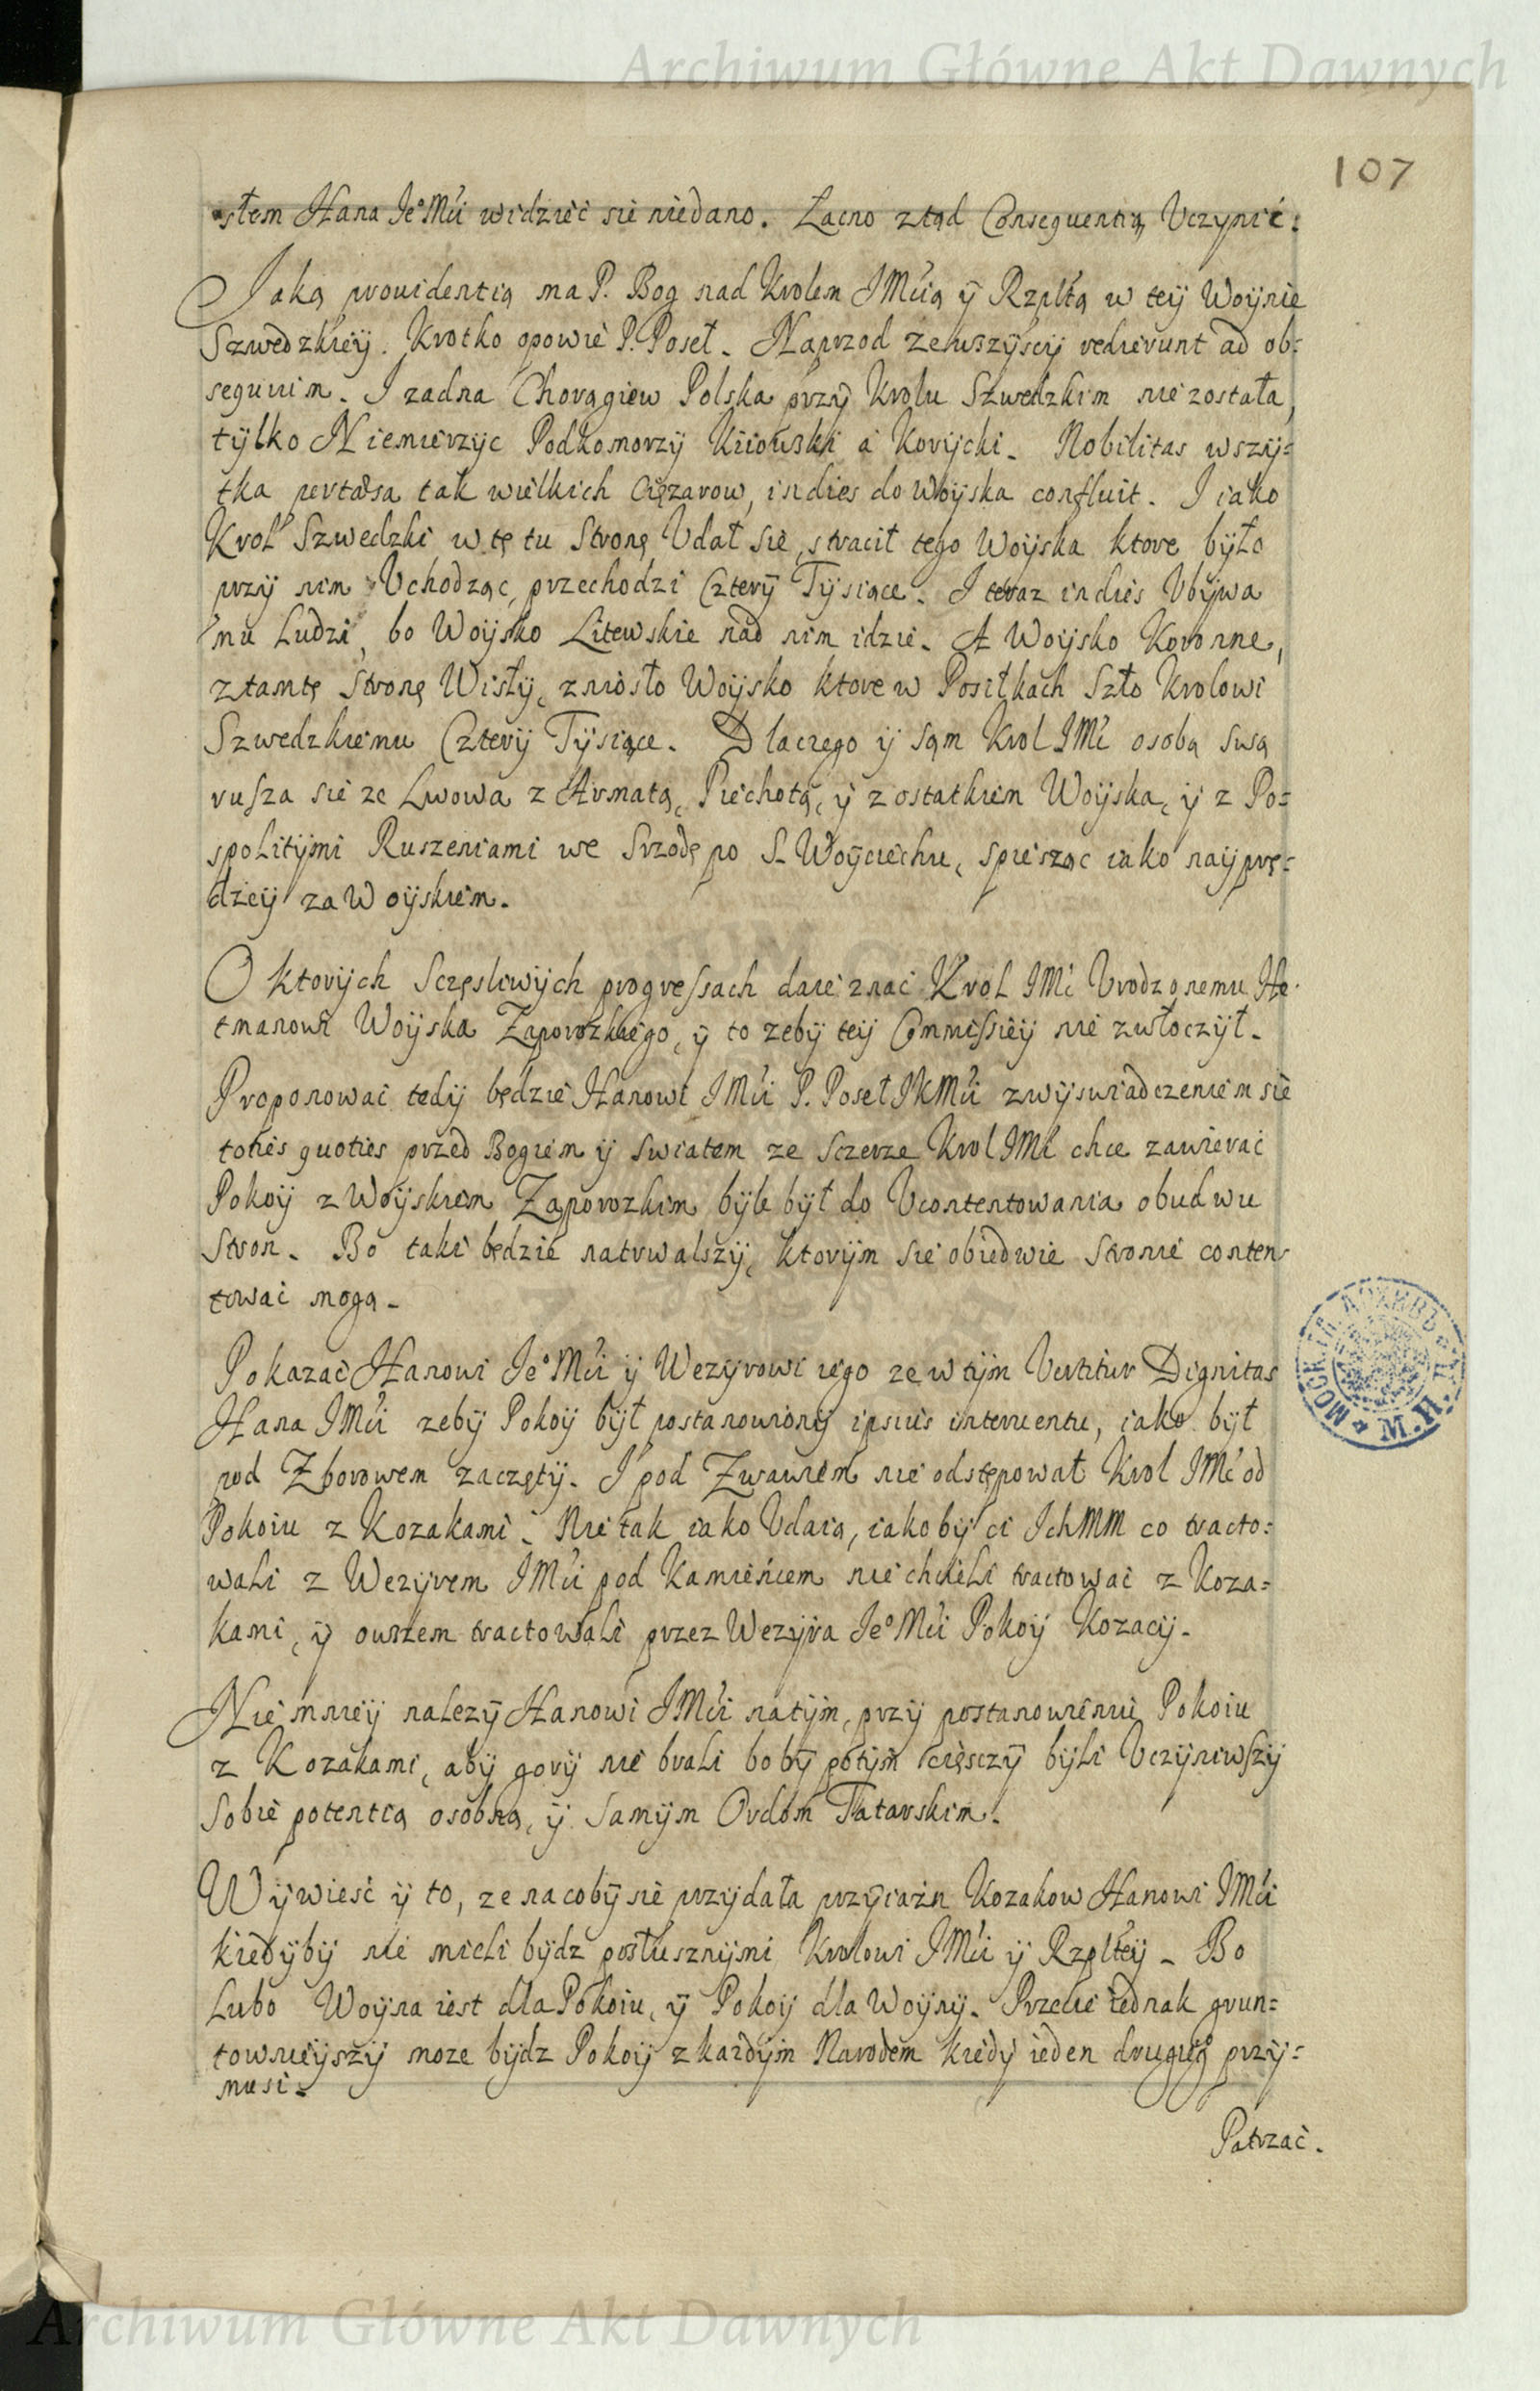 Archiwum Główne Akt Dawnych
107
słem Hana Je°Mći widzieć sie niedano. Łacno ztąd Consequentią Vczynić:
Jaką prouidentią ma P. Bog nad Krolem JMcią ÿ Rzpltą w teÿ Woÿnie
Szwedzkieÿ. Krotko opowie P. Poseł. Naprzod zewszÿscÿ redierunt ad ob=
sequium. I zadna Chorągiew Polska przÿ Krolu Szwedzkim nie została,
tÿlko Niemierzyc Podkomorzÿ Kiiowski a Korÿcki. Nobilitas wszÿ=
tka pertæsa tak wielkich Ciężarow, indies do Woÿska confluit. I iako
Krol Szwedzki w tę tu Stronę Vdał sie, stracił tego Woÿska ktore bÿło
przÿ nim Vchodząc, przechodzi Czterÿ Tÿsiące. I teraz indies Vbÿwa
mu Ludzi, bo Woÿsko Litewskie nad nim idzie. A Woÿsko Koronne,
ztamtę Stronę Wisłÿ, zniosło Woÿsko ktore w Posiłkach Szło Krolowi
Szwedzkiemu Czterÿ Tÿsiące. Dlaczego ÿ Sąm Krol JMć osobą swą
rusza sie ze Lwowa z Armatą, Piechotą, ÿ z ostatkiem Woÿska, ÿ z Po=
spolitÿmi Ruszeniami we Srzodę po S. Woÿciechu, spiesząc iako naÿprę=
dzeÿ za Woÿskiem.
O ktorÿch Sczęsliwÿch progressach daie znać Krol JMć Vrodzonemu He=
tmanowi Woÿska Zaporozkiego, ÿ to zebÿ teÿ Commissieÿ nie zwłoczÿł.
Proponować tedÿ będzie Hanowi JMći P. Poseł JKMći zwÿswiadczeniem się
toties quoties przed Bogiem ÿ swiatem ze Sczerze Krol JMć chce zawierać
Pokoÿ z Woÿskiem Zaporozkim bÿle bÿł do Vcontentowania obudwu
Stron. Bo taki będzie natrwalszÿ, ktorÿm sie obiedwie Stronie conten=
tować mogą.
Pokazać Hanowi Je°Mći ÿ Wezÿrowi iego ze w tÿm Vertitur Dignitas
Hana JMći zebÿ Pokoÿ bÿł postanowionÿ ipsius interuentu, iako bÿł
pod Zborowem zaczętÿ. I pod Zwańcem nie odstępował Krol JMć od
Pokoiu z Kozakami. Nie tak iako Vdaią, iakobÿ ci IchMM co tracto=
wali z Wezÿrem JMći pod Kamieńcem nie chcieli tractować z Koza=
kami, ÿ owszem tractowali przez Wezÿra Je°Mći Pokoÿ Kozacÿ.
Nie mnieÿ należÿ Hanowi JMći natÿm, przÿ postanowieniu Pokoiu
z Kozakami, abÿ gorÿ nie brali bobÿ potÿm cięsczÿ bÿli Vczÿniwszÿ
Sobie potentią osobną, ÿ Samÿm Ordom Tatarskim.
Wÿwieść ÿ to, ze nacobÿ sie przÿdała przÿiaźn Kozakow Hanowi JMći
kiedÿbÿ nie mieli bÿdz posłusznÿmi Krolowi JMći ÿ Rzplteÿ. Bo
Lubo Woÿna iest dla Pokoiu, ÿ Pokoÿ dla Woÿnÿ. Przecie iednak grun=
townieÿszÿ moze bÿdz Pokoÿ z kazdÿm Narodem kiedÿ ieden drugie° przÿ=
musi.
Patrzać.
Archiwum Główne Akt Dawnych